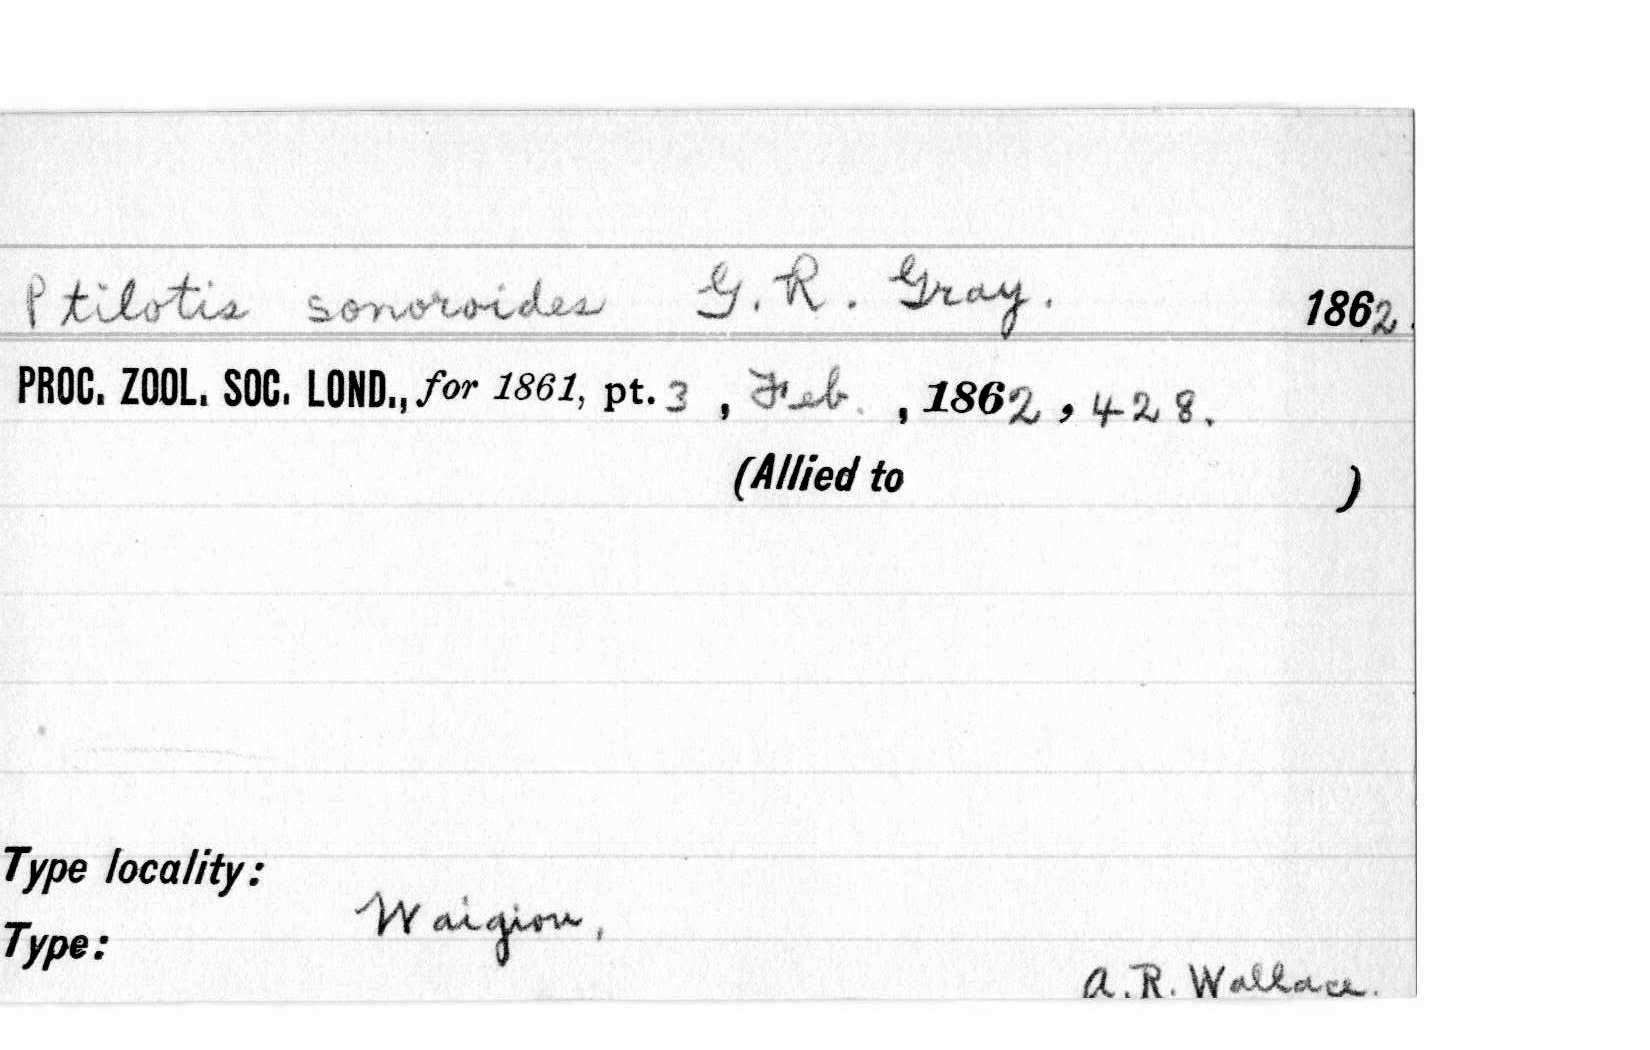 Ptilotis sonoroides G. R. Gray. 1862.
PROC. ZOOL. SOC. LOND., for 1861, pt. 3, Feb. , 1862, 428.
(Allied to )
Type locality:
Waigiou,
Type:
A.R. Wallace.